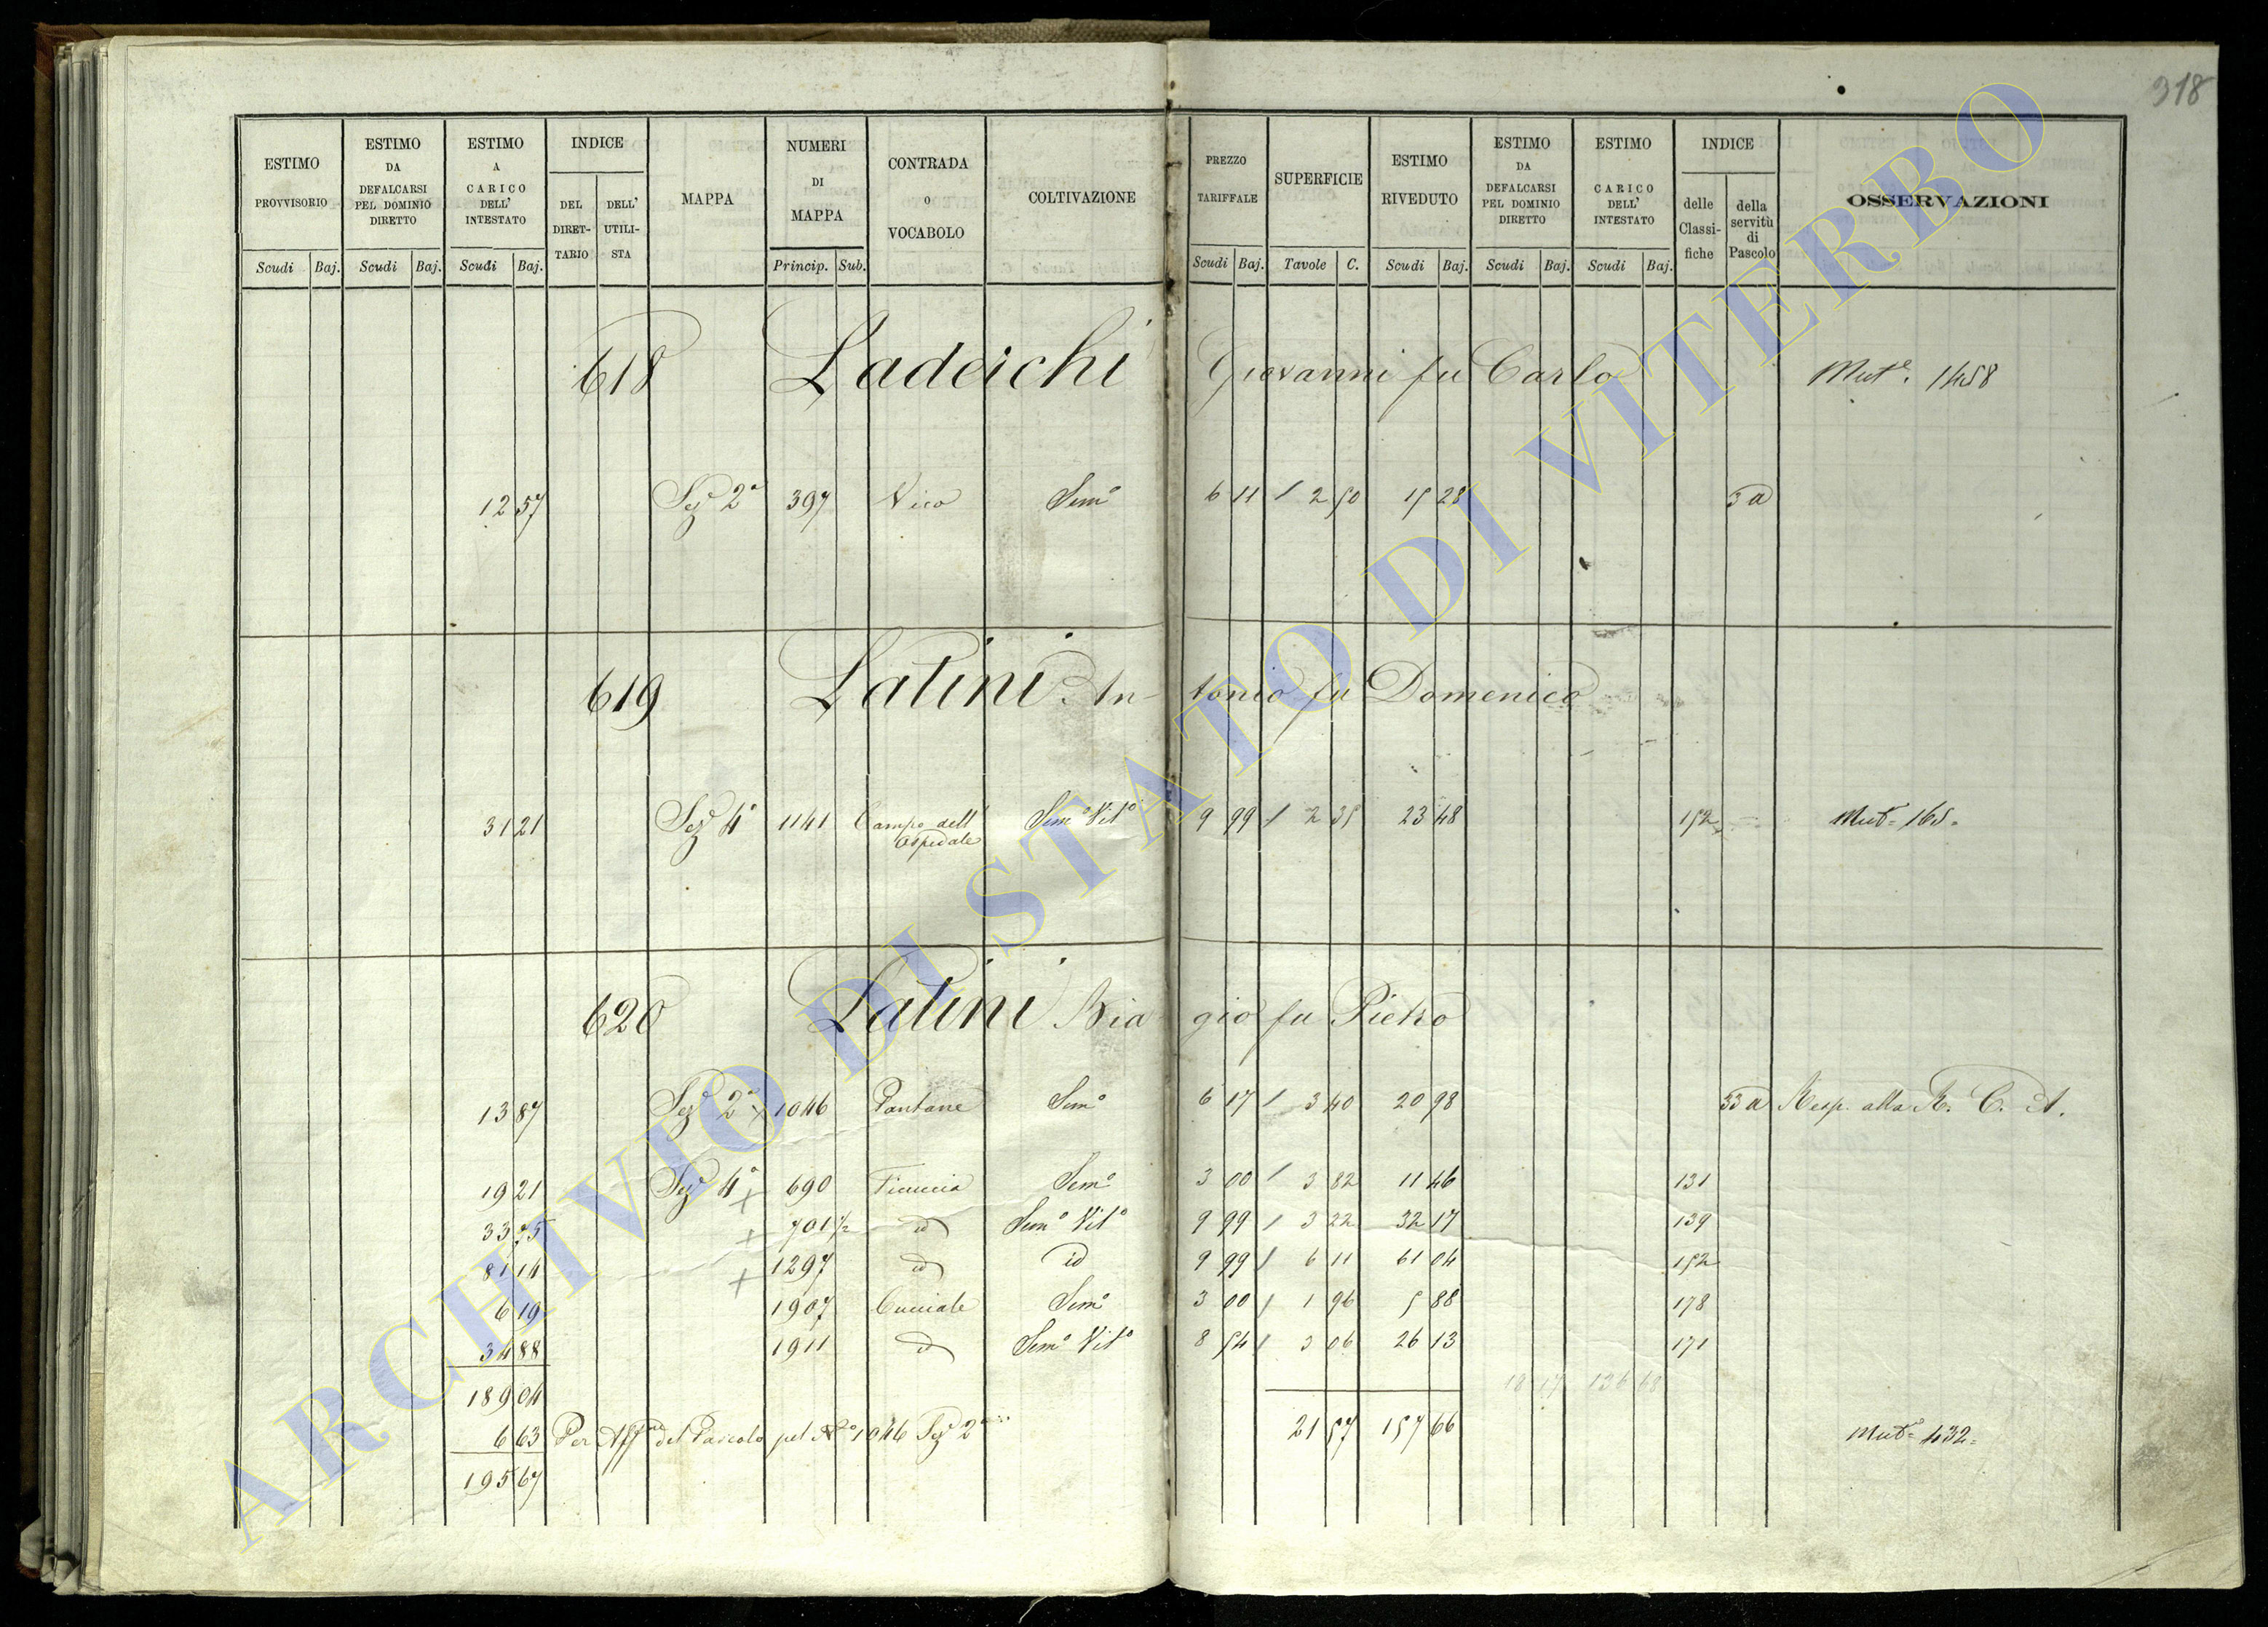 318
ESTIMO PROVVISORIO
ESTIMO DA DEFALCARSI PEL DOMINIO DIRETTO
ESTIMO A CARICO DELL' INTESTATO
INDICE
DEL DIRETTARIO
DELL' UTILISTA
MAPPA
NUMERI DI MAPPA
CONTRADA O VOCABOLO
COLTIVAZIONE
PREZZO TARIFFALE
SUPERFICIE
ESTIMO RIVEDUTO
ESTIMO DA DEFALCARSI PEL DOMINIO DIRETTO
ESTIMO CARICO DELL' INTESTATO
INDICE
delle Classifiche
della servitù di Pascolo
OSSERVAZIONI
Scudi Baj. Scudi Baj. Scudi Baj. Princip. Sub. Scudi Baj. Tavole C. Scudi Baj. Scudi Baj. Scudi Baj.
618 Ladeichi Giovanni fu Carlo Mut.e 1458
12 57 Sez.e 2a 397 Vico Sem.o 6 11 / 2 50 15 28 5 a
619 Latini Antonio fu Domenico
31 21 Sez.e 4a 1141 Campo dell' Ospedale Sem.o Vit.o 9 99 / 2 35 23 48 152 Mut.e 165
620 Latini Biagio fu Pietro
13 87 Sez.e 2a x 1046 Pantane Sem.o 6 17 / 3 40 20 98 53 a Resp. alla R. C. A.
19 21 Sez.e 4a x 690 Ficuccia Sem.o 3 00 / 3 82 11 46 131
33 75 x 701 1/2 id Sem.o Vit.o 9 99 / 3 22 32 17 139
81 14 x 1297 id id 9 99 / 6 11 61 04 152
6 19 1907 Cucciale Sem.o 3 00 / 1 96 5 88 178
34 88 1911 id Sem.o Vit.o 8 54 / 3 06 26 13 171
189 04 136 68
6 63 Per Aff.ne del Pascolo pel N.o 1046 Sez.e 2a 21 57 157 66 Mut.e 432
195 67
ARCHIVIO DI STATO DI VITERBO